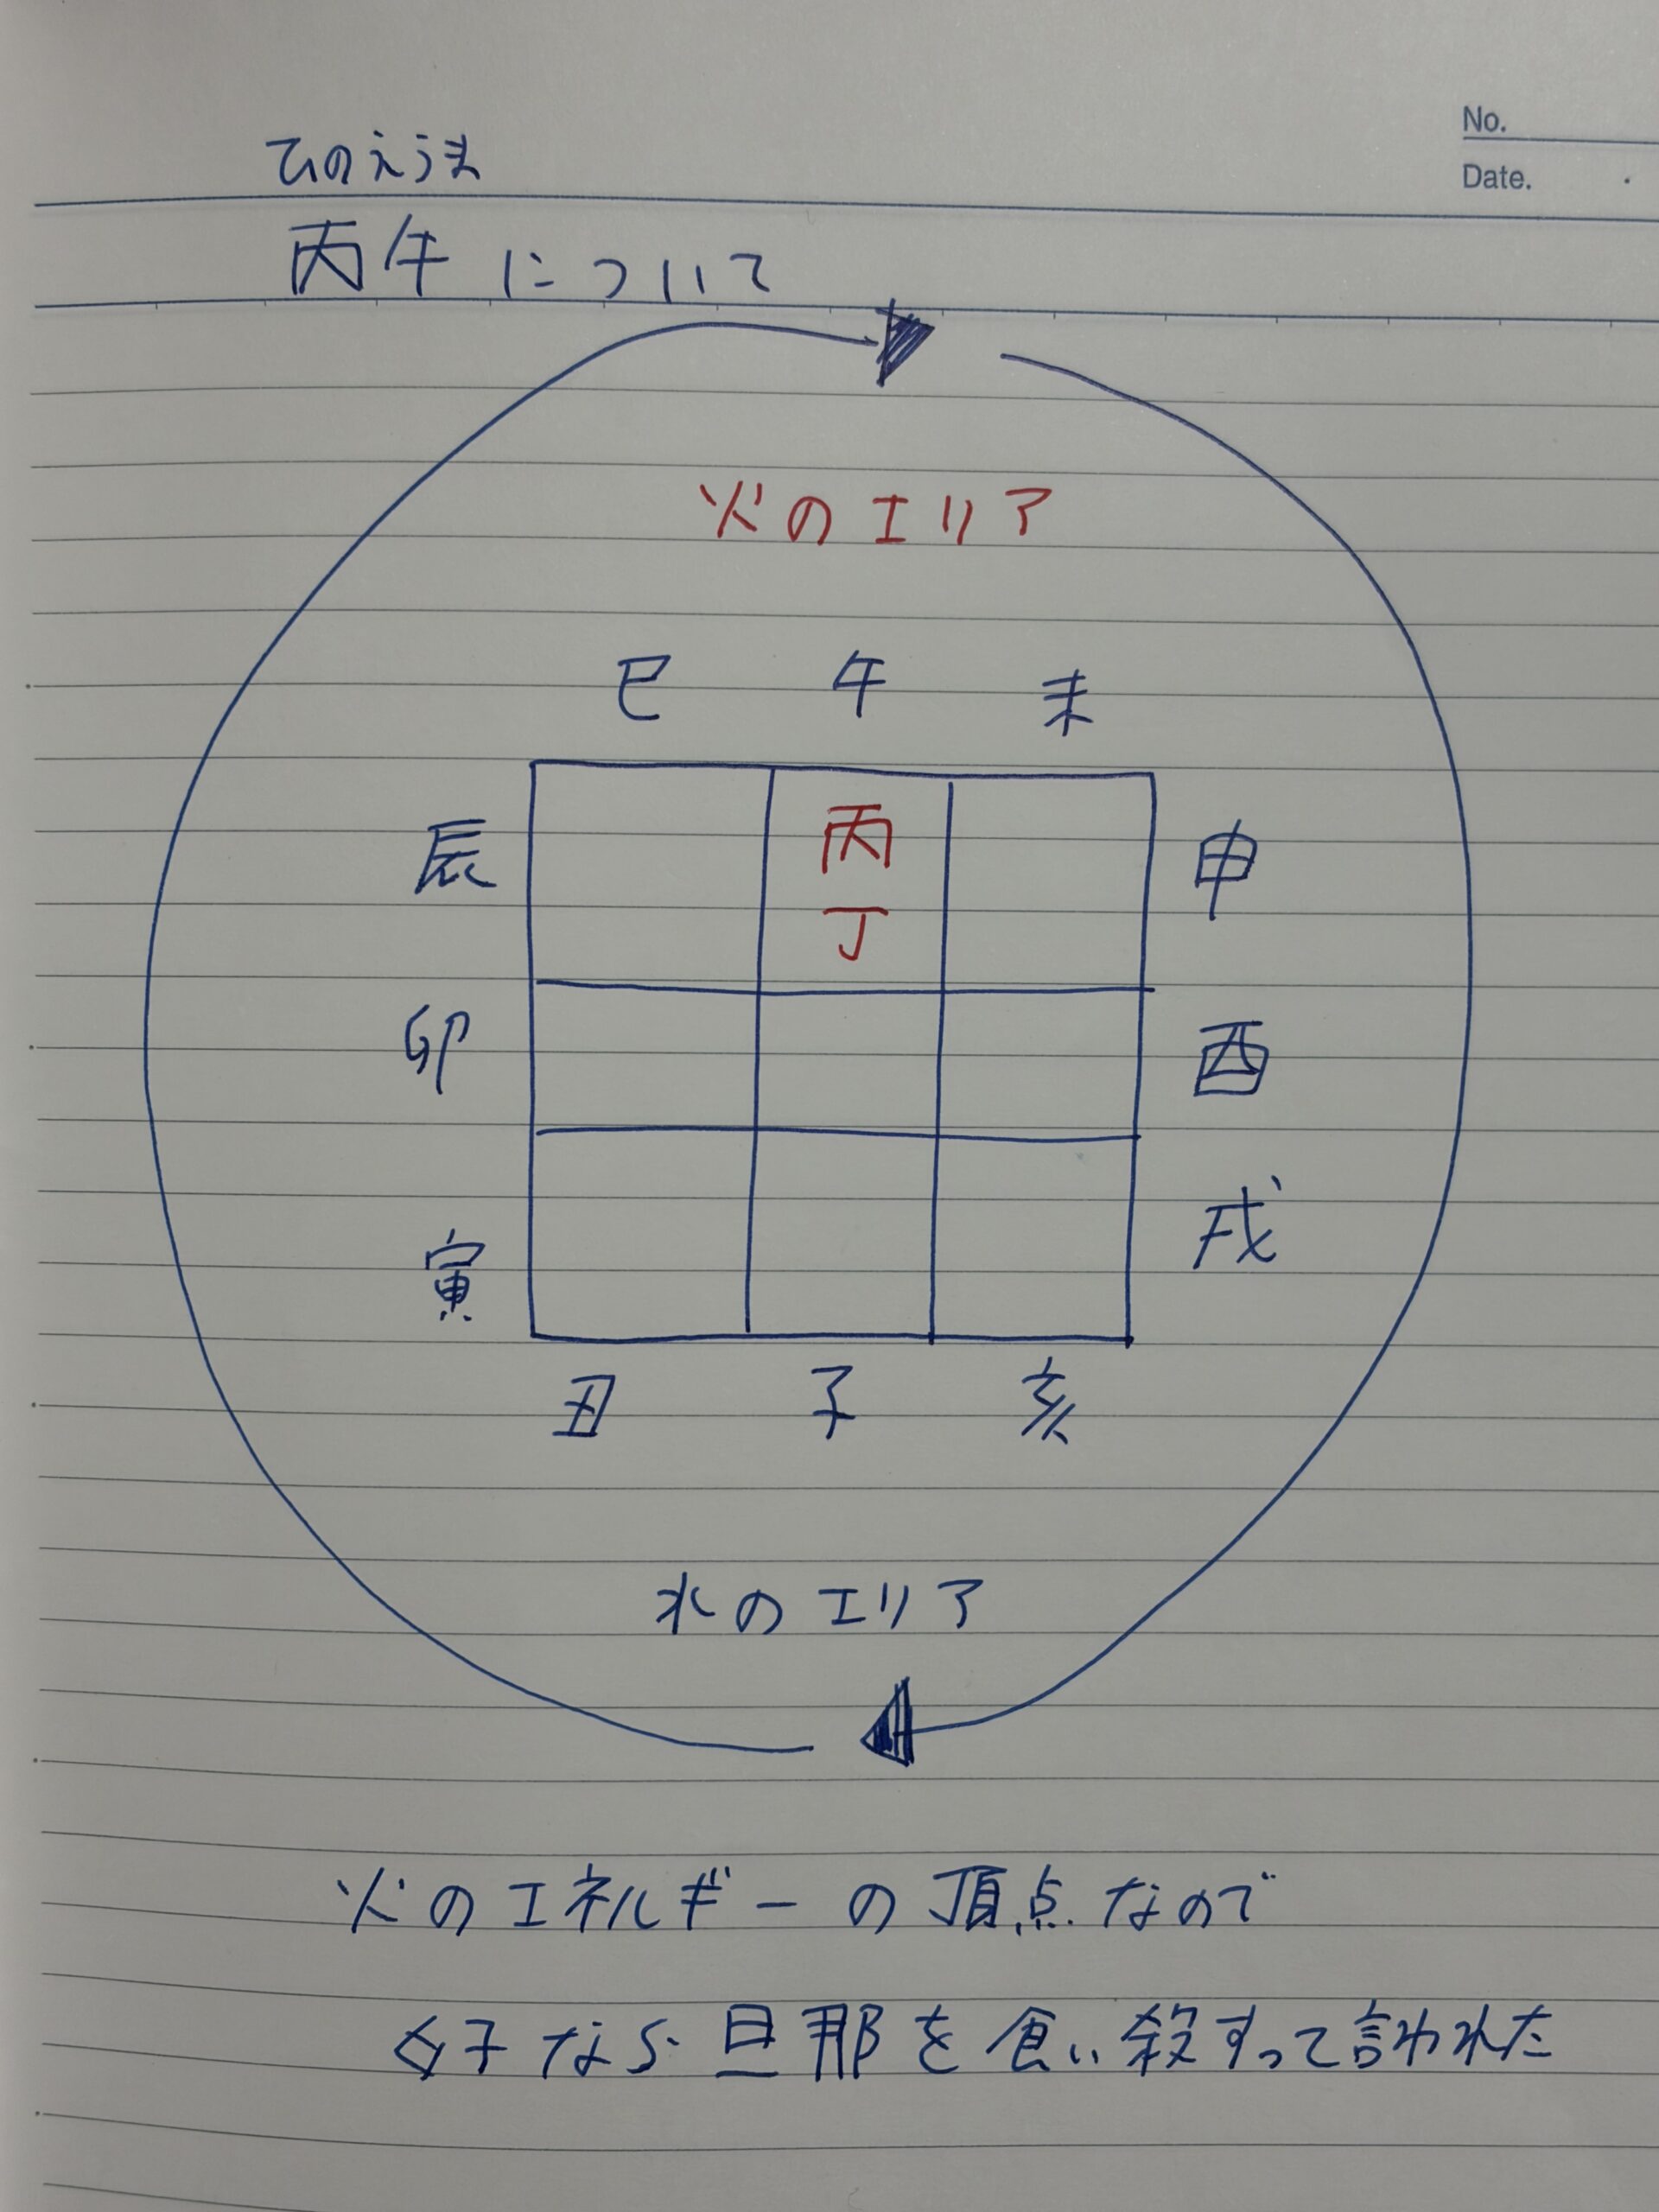 No.
Date.
ひのえうま
丙午について
火のエリア
巳 午 未
辰 丙 申
丁
卯 酉
寅 戌
丑 子 亥
水のエリア
火のエネルギーの頂点なので
女子なら旦那を食い殺すって言われた